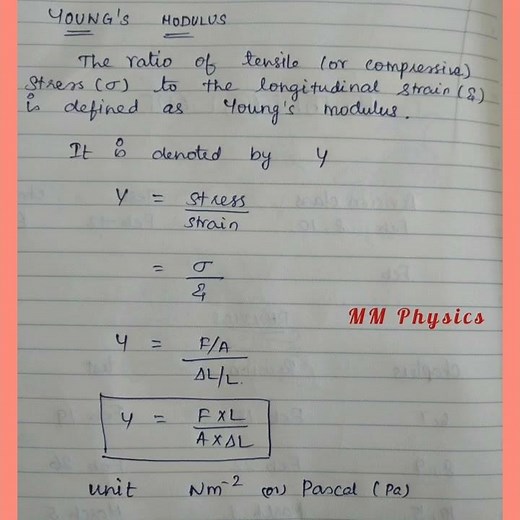 YOUNG's MODULUS
The ratio of tensile (or compressive)
stress (σ) to the longitudinal strain (ε)
is defined as Young's modulus.
It is denoted by Y
Y = stress/strain
= σ/ε
MM Physics
Y = F/A / ΔL/L.
Y = F×L / A×ΔL
unit Nm⁻² (or) Pascal (Pa)